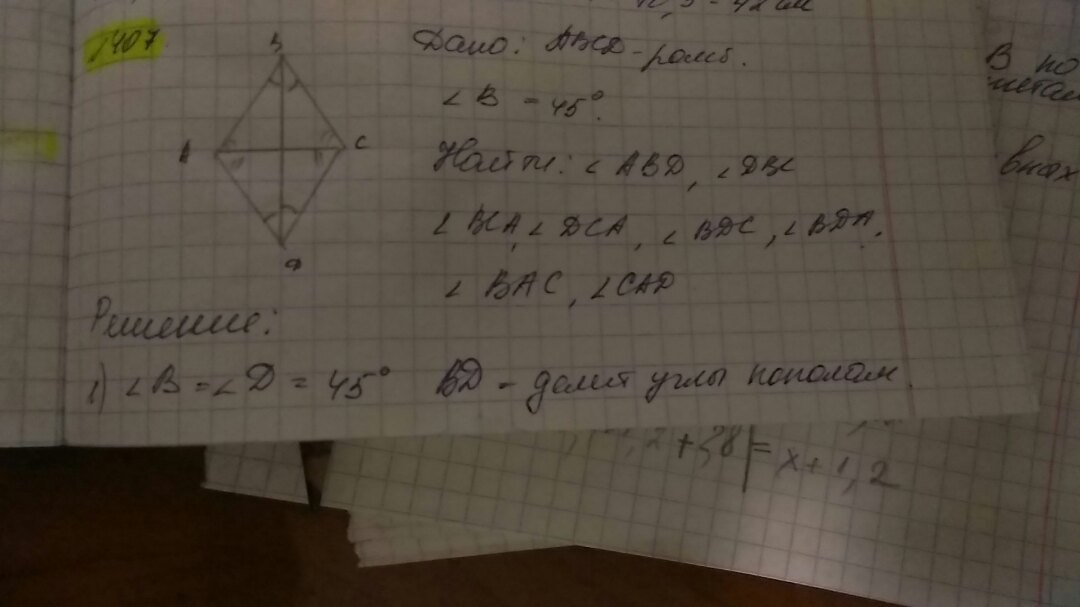 №407
B
A
C
D
Дано: ABCD - ромб.
∠B = 45°.
Найти: ∠ABD, ∠DBC
∠BCA, ∠DCA, ∠BDC, ∠BDA,
∠BAC, ∠CAD
Решение:
1) ∠B = ∠D = 45° BD - делит углы пополам.
В по
внах
= x + 1,2